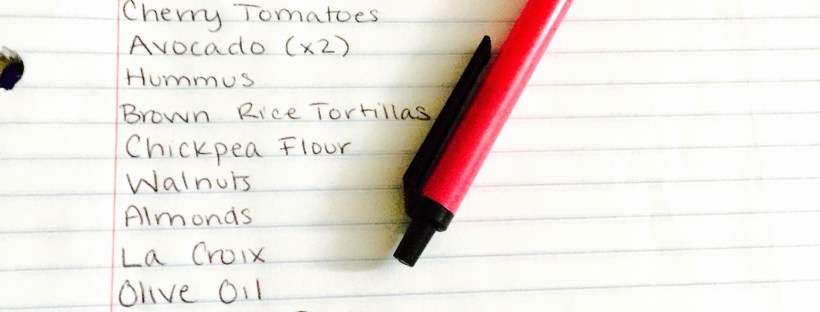 Cherry Tomatoes
Avocado (x2)
Hummus
Brown Rice Tortillas
Chickpea Flour
Walnuts
Almonds
La Croix
Olive Oil